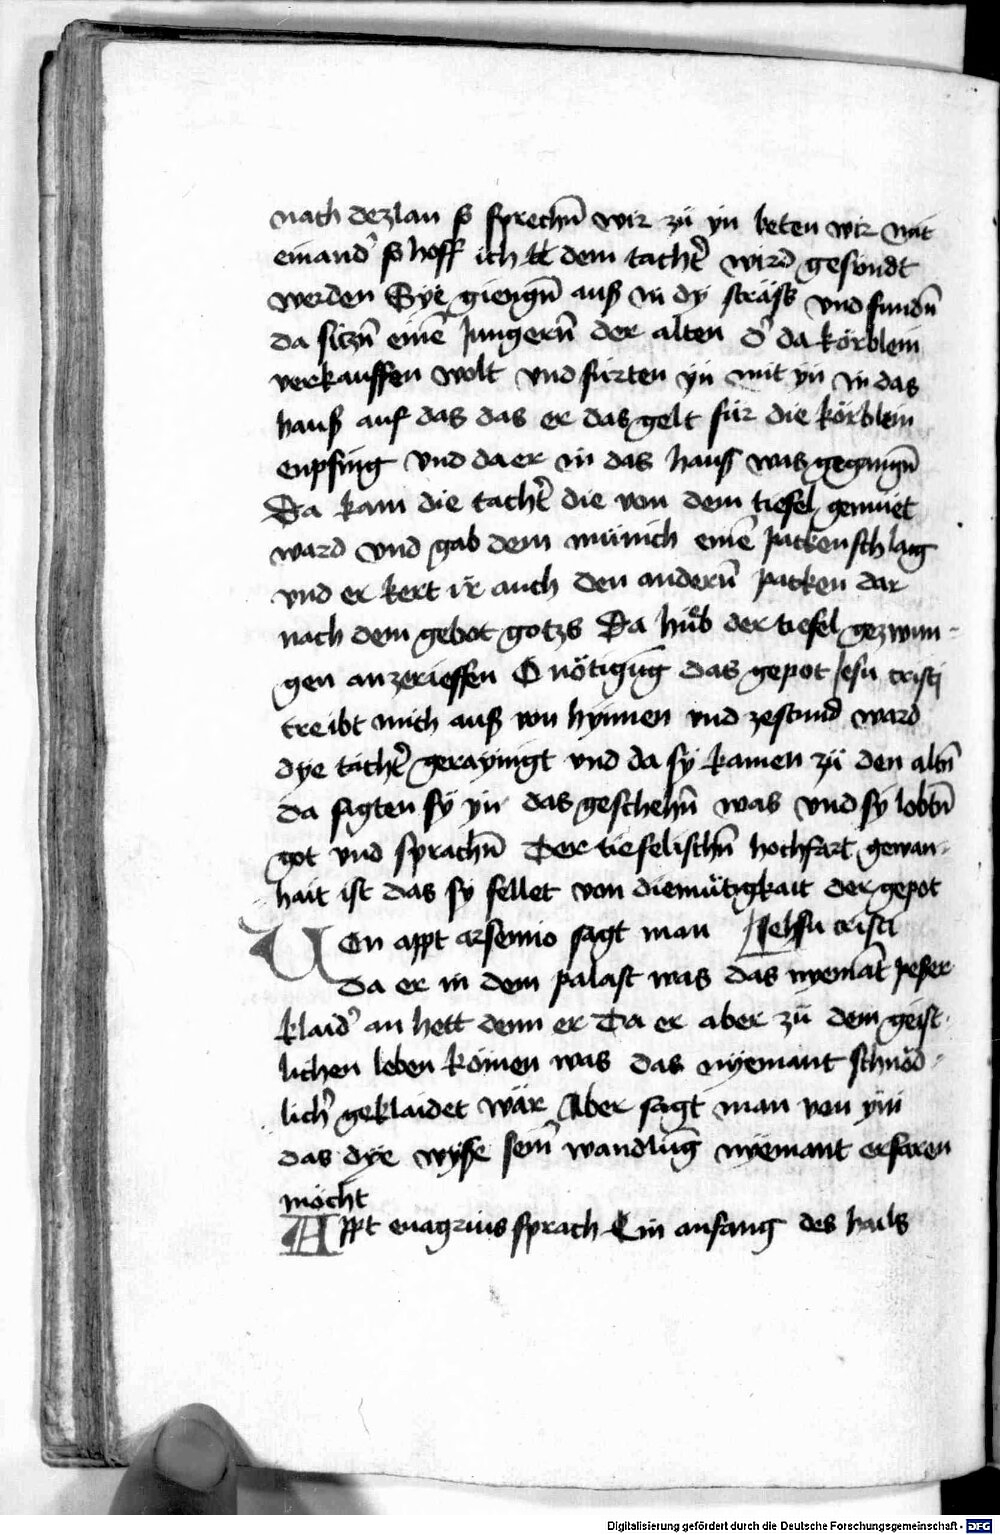 nach dezlan so sprechn̄ wir zü yn beten wir mit
einand' so hoff ich dem tacht' wird gesundt
werden Sye giengn̄ auß in dy sträß vnd fundn̄
da sitzn̄ einē Jungern̄ der alten d' da körblein
verkauffen wolt vnd fürten yn mit yn in das
hauß auf das das er das gelt für die körblein
enpfing vnd da er in das hauß was gegangn̄
Da kam die tacht' die von dem tiefel gemüet
ward vnd gab dem münich einē packenschlag
vnd er kert ir auch den andern̄ packen dar
nach dem gebot gotzs Da hůb der tiefel gezwun-
gen anzerieffen O nötigūg das gepot Jesu cristi
treibt mich auß von hynnen vnd zestund ward
dye tächt' gerayingt vnd da sy kamen zü den altn̄
da sagten sy yn das geschehn̄ was vnd sy lobtn̄
got vnd sprachn̄ Der tiefelischn̄ hochfart gewan-
hait ist das sy fellet von diemütigkait der gepot
Jehsu cristi
Von appt arsennio sagt man
da er in dem palast was das nyemāt peser
klaid' an hett denn er Da er aber zü dem geist-
lichen leben kömen was das nyemant schnöd-
lich' geklaidet wär Aber sagt man von ym
das dye wyse sein' wandlūg nyemant erfaren
möcht
Appt euagrius sprach Ein anfang des hails
Digitalisierung gefördert durch die Deutsche Forschungsgemeinschaft - DFG